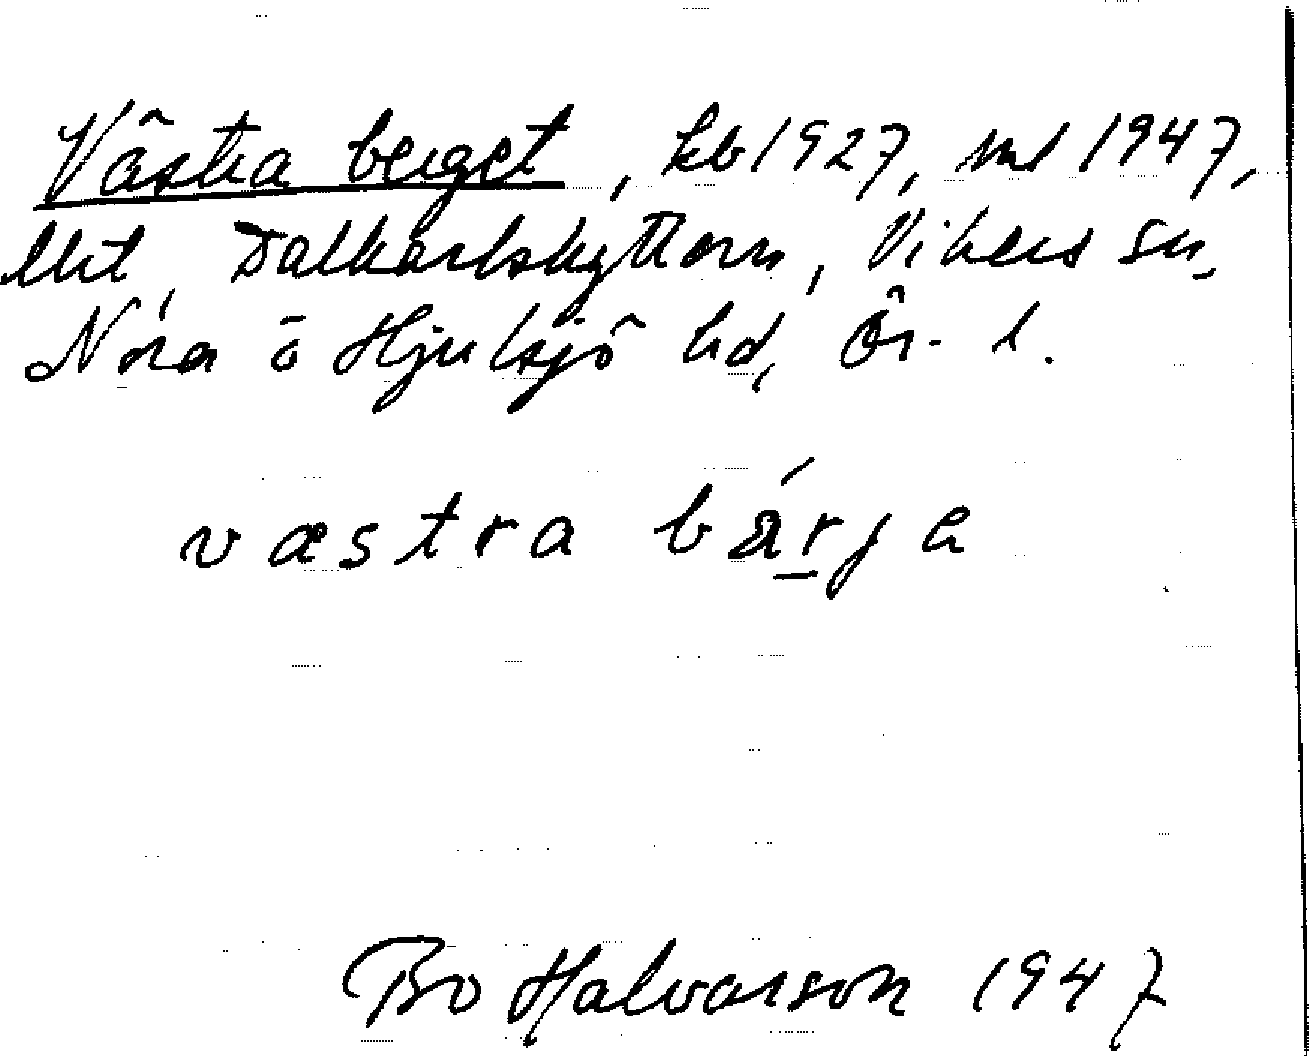 Västra berget, kb 1927, ml 1947,
lht, Dalkarlshyttan, Vikers sn,
Nora o Hjulsjö hd, Ör. l.
væstra bárja
Bo Halvarson 1947